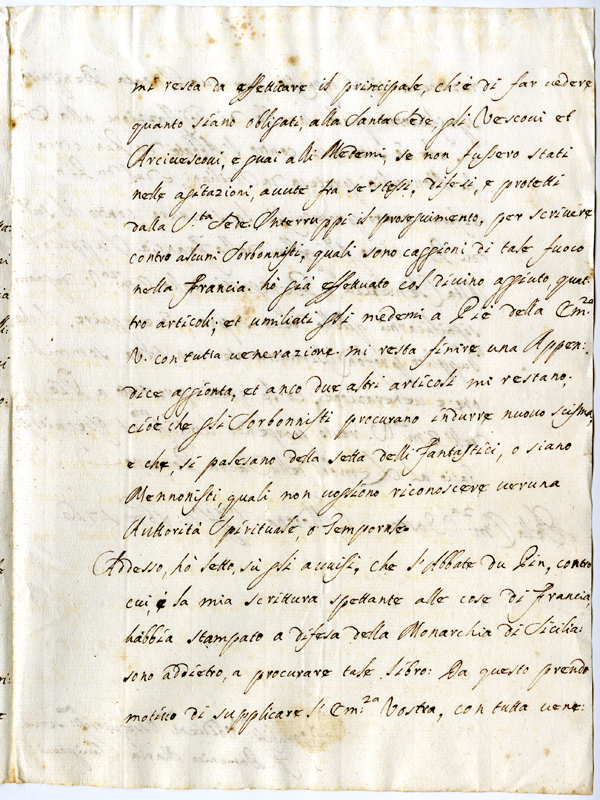 mi resta da effettuare il principale, ch'è di far vedere
quanto siano obligati, alla Santa Sede, gli Vescovi et
Arcivescovi, e guai alli Medemi, se non fussero stati
nelle agitazioni, avute fra se stessi, difesi, e protetti
dalla S.ta Sede. Interruppi il proseguimento, per scrivere
contro alcuni Sorbonnisti, quali sono caggioni di tale fuoco
nella Francia. hò già effettuato col divino aggiuto, quat:
tro articoli; et umiliati gli medemi a Piè della Em.za
V. con tutta venerazione. mi resta finire una Appen:
dice aggionta, et anco due altri articoli mi restano;
cioè che gli Sorbonnisti procurano indurre nuovo scisma,
e che, si palesano della setta delli Fantastici, o siano
Mennonisti, quali non vogliono riconoscere veruna
Authorità Spirituale, o Temporale.
Adesso, hò letto, sù gli avvisi, che l'Abbate du Pin, contro
cui, è la mia scrittura spettante alle cose di Francia,
habbia stampato a difesa della Monarchia di Sicilia:
sono addietro, a procurare tale libro: Da questo prendo
motivo di supplicare l'Em.za Vostra, con tutta vene: